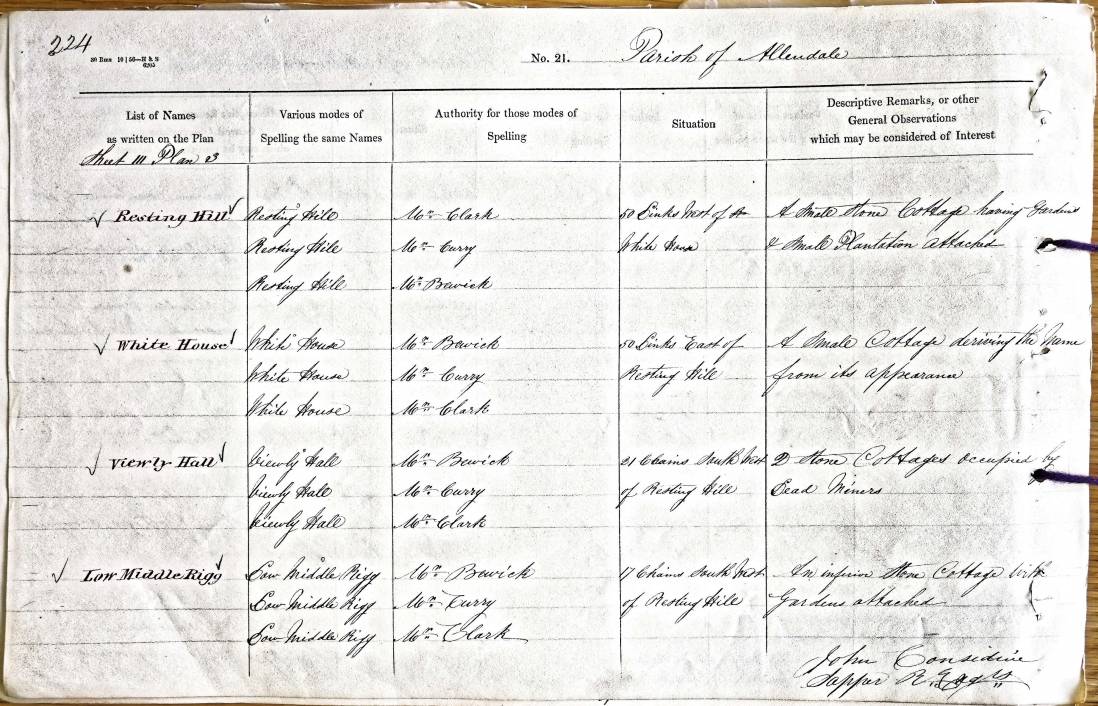 224
No. 21. Parish of Allendale
List of Names as written on the Plan
Various modes of Spelling the same Names
Authority for those modes of Spelling
Situation
Descriptive Remarks, or other General Observations which may be considered of Interest
Sheet 111 Plan 23
Resting Hill Resting Hill Mr. Clark 50 Links West of A Small Stone Cottage having Gardens
Resting Hill Mr. Curry White House & Small Plantation attached
Resting Hill Mr. Bewick
White House White House Mr. Bewick 50 Links East of A Small Cottage deriving the Name
White House Mr. Curry Resting Hill from its appearance
White House Mr. Clark
Viewly Hall Viewly Hall Mr. Bewick 21 Chains South West 2 Stone Cottages occupied by
Viewly Hall Mr. Curry of Resting Hill Lead Miners
Viewly Hall Mr. Clark
Low Middle Rigg Low Middle Rigg Mr. Bewick 17 Chains South West An inferior Stone Cottage with
Low Middle Rigg Mr. Curry of Resting Hill Gardens attached
Low Middle Rigg Mr. Clark
John Considine
Sapper R.